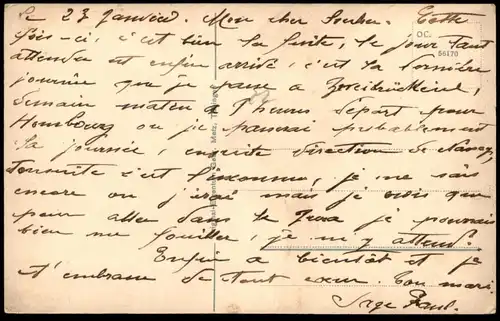 le 23 Janvier. Mon cher Cette
fois-ci, c'est bien la fuite, le jour tant
attendu est enfin arrivé, c'est la dernière
journée que je passe a Zweibrücken,
demain matin a 7 heures départ pour
Hombourg ou je passerai probablement
la journée, ensuite direction de Nancy,
ensuite c'est l'inconnu, je ne sais
encore ou j'irai mais je crois que
pour aller dans le je pourrais
bien me fouiller, je m'y attends.
Enfin a bientôt et je
t'embrasse de tout cœur. Ton mari.
Paul.
OC.
56170
Metz,